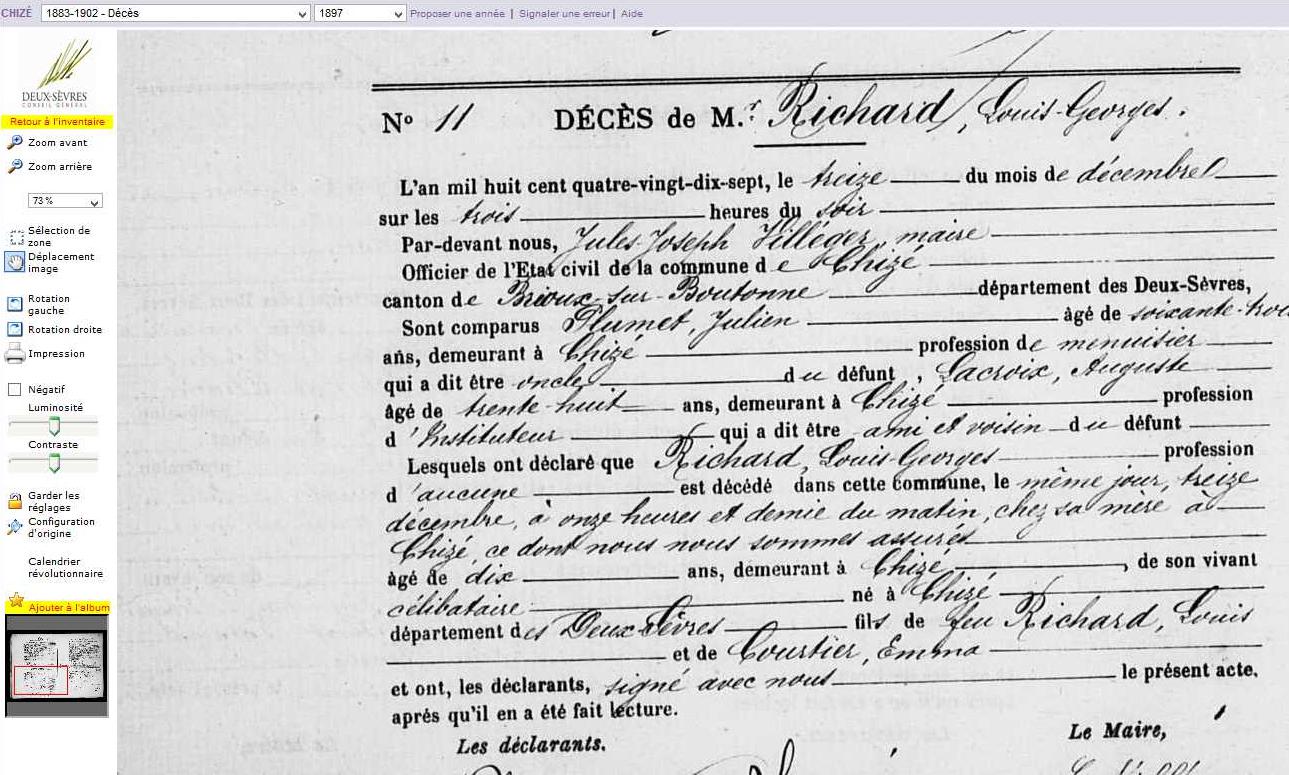 CHIZÉ 1883-1902 - Décès 1897 Proposer une année | Signaler une erreur | Aide
DEUX-SÈVRES
CONSEIL GÉNÉRAL
Retour à l'inventaire
Zoom avant
Zoom arrière
73 %
Sélection de
zone
Déplacement
image
Rotation
gauche
Rotation droite
Impression
Négatif
Luminosité
Contraste
Garder les
réglages
Configuration
d'origine
Calendrier
révolutionnaire
Ajouter à l'album
N° 11 DÉCÈS de M.r Richard, Louis-Georges.
L'an mil huit cent quatre-vingt-dix-sept, le treize du mois de décembre
sur les trois heures du soir
Par-devant nous, Jules-Joseph Villéger, maire
Officier de l'Etat civil de la commune de Chizé
canton de Brioux-sur-Boutonne département des Deux-Sèvres,
Sont comparus Plumet, Julien âgé de soixante-trois
ans, demeurant à Chizé profession de menuisier
qui a dit être oncle du défunt, Lacroix, Auguste
âgé de trente-huit ans, demeurant à Chizé profession
d'Instituteur qui a dit être ami et voisin du défunt
Lesquels ont déclaré que Richard, Louis-Georges profession
d'aucune est décédé dans cette Commune, le même jour, treize
décembre, à onze heures et demie du matin, chez sa mère à
Chizé, ce dont nous nous sommes assurés
âgé de dix ans, demeurant à Chizé, de son vivant
célibataire né à Chizé
département des Deux-Sèvres fils de feu Richard, Louis
et de Courtier, Emma
et ont, les déclarants, signé avec nous le présent acte,
après qu'il en a été fait lecture.
Les déclarants. Le Maire,